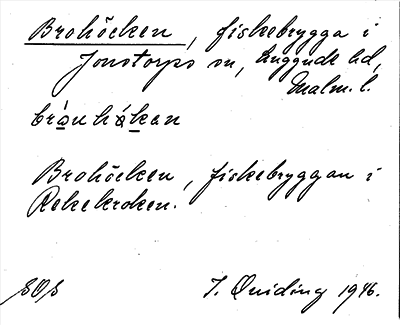 Brohöcken, fiskebrygga i
Jonstorps sn, Luggude hd,
Malm. l.
bròunhákan
Brohöcken, fiskebryggan i
Rekekroken.
SOS J. Quiding 1946.